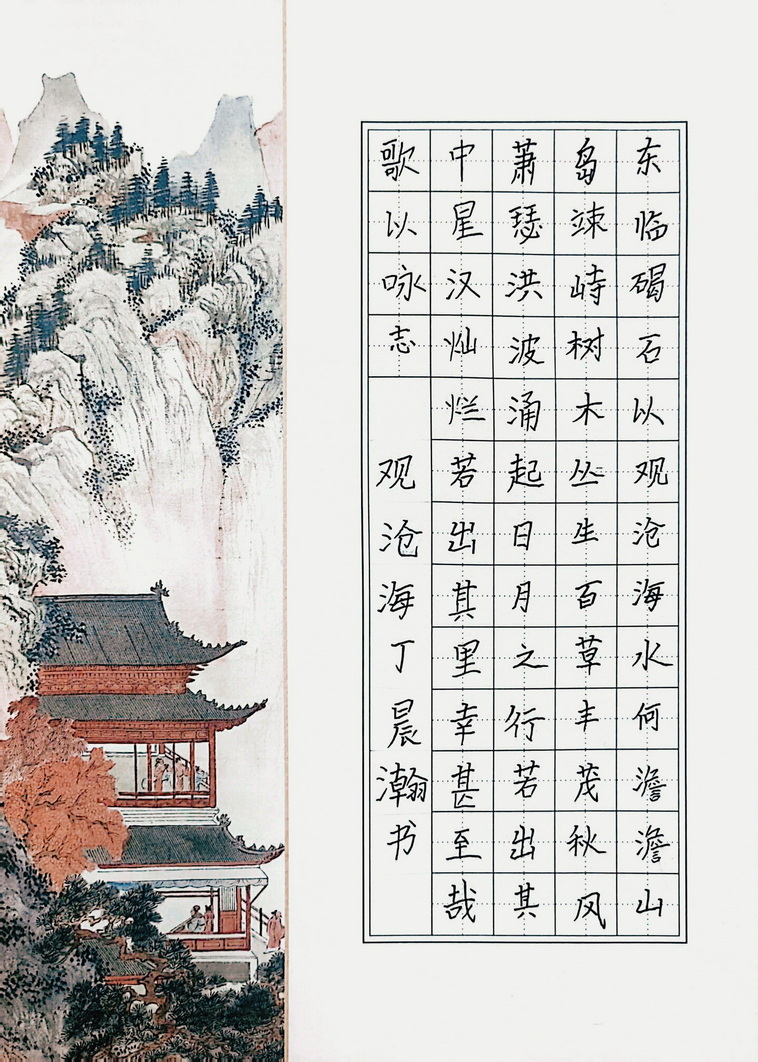 东临碣石以观沧海水何澹澹山
岛竦峙树木丛生百草丰茂秋风
萧瑟洪波涌起日月之行若出其
中星汉灿烂若出其里幸甚至哉
歌以咏志
观沧海丁晨瀚书